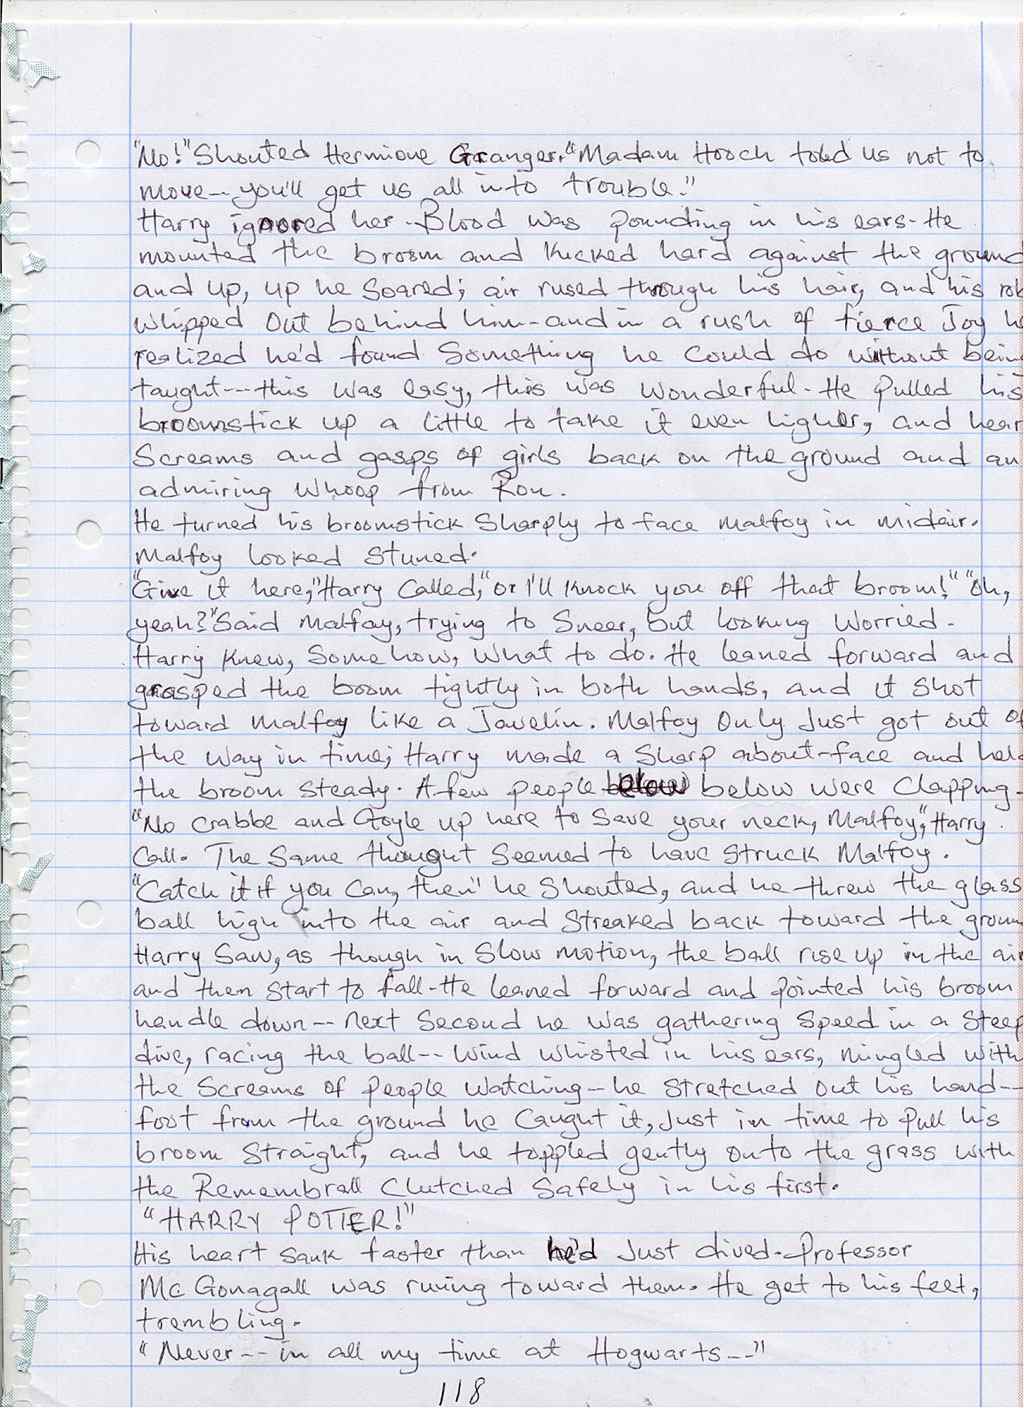 "No!" Shouted Hermione Granger. "Madam Hooch told us not to
move-- you'll get us all into trouble."
Harry ignored her. Blood was pounding in his ears. He
mounted the broom and kicked hard against the ground
and up, up he soared; air rused through his hair, and his rob
whipped out behind him-and in a rush of fierce Joy he
realized he'd found Something he could do without bein
taught---this was easy, this was wonderful. He pulled his
broomstick up a little to take it even higher, and hear
Screams and gasps of girls back on the ground and an
admiring whoop from Ron.
He turned his broomstick Sharply to face malfoy in midair.
Malfoy looked stuned.
"Give it here," Harry Called, "or I'll knock you off that broom!" "Oh,
yeah?" Said malfoy, trying to Sneer, but looking worried.
Harry knew, Somehow, what to do. He leaned forward and
grasped the boom tightly in both hands, and it shot
toward malfoy like a Javelin. Malfoy Only Just got out of
the way in time; Harry made a sharp about-face and held
the broom steady. A few people below below were Clapping.
"No crabbe and Goyle up here to save your neck, Malfoy," Harry
Call. The Same thought seemed to have struck Malfoy.
"Catch it if you can, then" he shouted, and he threw the glass
ball high into the air and streaked back toward the groun
Harry Saw, as though in slow motion, the ball rise up in the air
and then start to fall. He leaned forward and pointed his broom
handle down-- next second he was gathering speed in a steep
dive, racing the ball-- wind whisted in his ears, mingled with
the Screams of people watching-- he stretched out his hand--
foot from the ground he caught it, Just in time to pull his
broom straight, and he toppled gently onto the grass with
the Remembrall clutched safely in his first.
"HARRY POTTER!"
His heart sank faster than he'd Just dived. Professor
Mc Gonagall was runing toward them. He get to his feet,
trembling.
"Never-- in all my time at Hogwarts--"
118